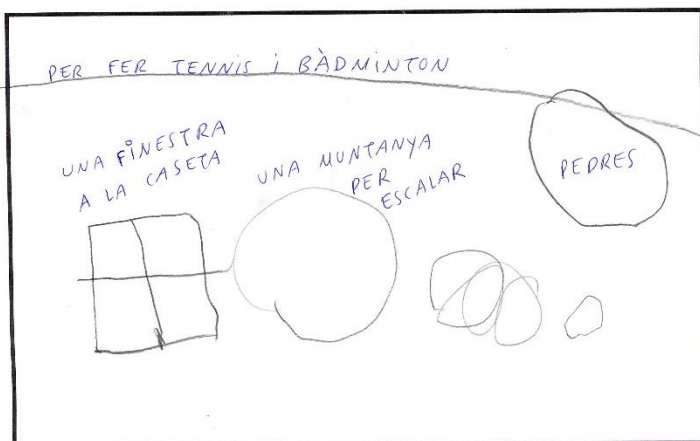 PER FER TENNIS i BÀDMINTON
UNA FINESTRA
A LA CASETA
UNA MUNTANYA
PER
ESCALAR
PEDRES